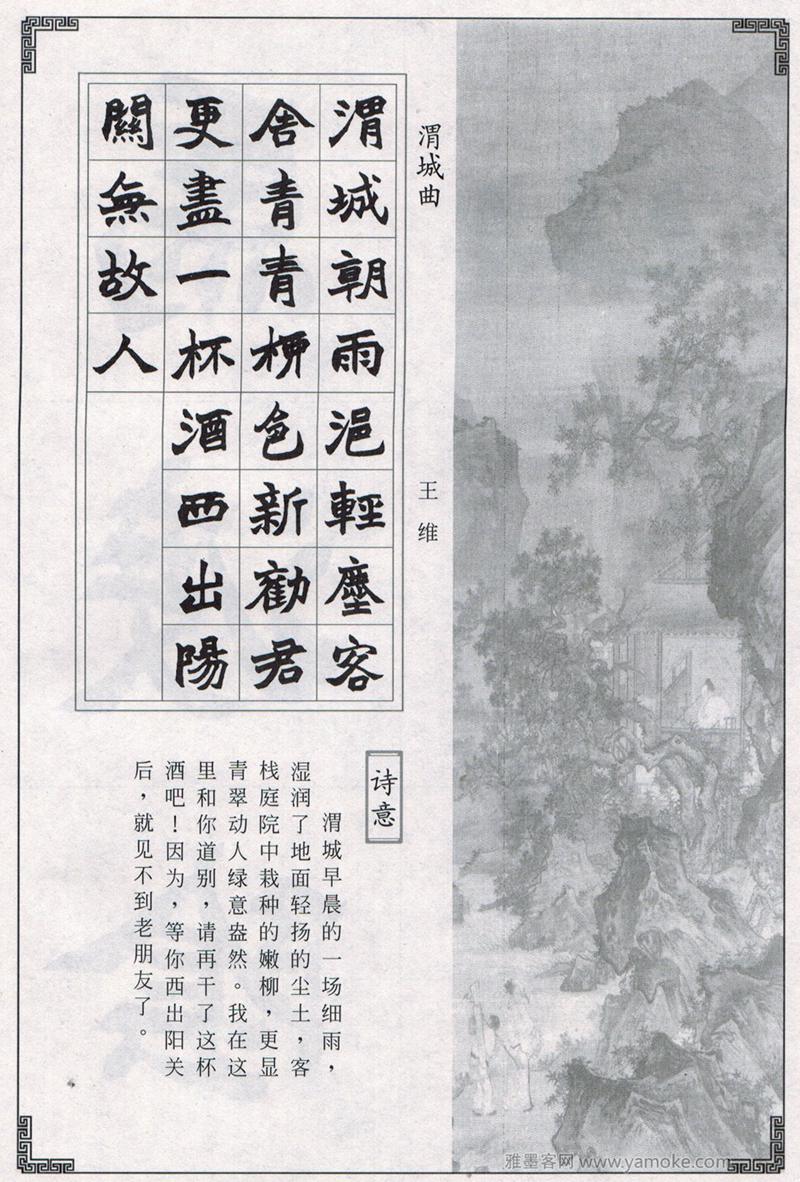 渭城曲
王维
渭城朝雨浥輕塵客
舍青青桺色新勸君
更盡一杯酒西出陽
關無故人
诗意
渭城早晨的一场细雨，
湿润了地面轻扬的尘土，客
栈庭院中栽种的嫩柳，更显
青翠动人绿意盎然。我在这
里和你道别，请再干了这杯
酒吧！因为，等你西出阳关
后，就见不到老朋友了。
雅墨客网 www.yamoke.com